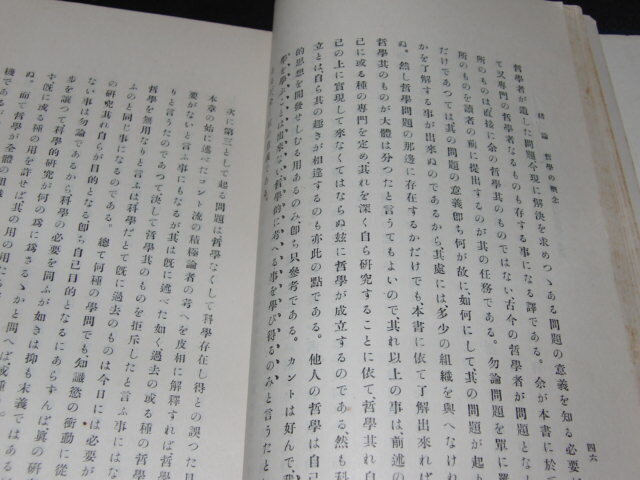 緒論　哲學の概念
四六
哲學者が遺した問題を現に解決を求めつゝある問題の意義を知る必要が
て又專門の哲學者なるものも存する事になる譯である。余が本書に於て
所のものは直接に余の哲學其のものではない古今の哲學者が問題となし
所のものを讀者の前に提出するのが其の任務である。勿論問題を單に羅
だけであつては其の問題の意義卽ち何が故に、如何にして其の問題が起り
かを了解する事が出來ぬのであるから其處には多少の組織を與へなけれ
ぬ。然し哲學問題の那邊に存在するかだけでも、本書に依て了解出來れば
哲學其のものが大體は分つたと言うてもよいので其れ以上の事は前述の
己に或る種の專門を定め、其れを深く自ら研究することに依て哲學其れ自
己の上に實現して來なくてはならぬ玆に哲學が成立するのである、然も科
立とは、自ら其の趣きが相違するのも亦此の點である。他人の哲學は自己
的思想を開發せしむる用あるのみ卽ち只參考である。カントは好んで、我
哲學的に考へる事を學び得るのみと言うたと
次に第三として起る問題は哲學なくして科學存在し得との誤つた見
本章の始に述べたコント流の積極論者の考へを皮相に解釋すれば、哲學
要がないと言ふ事にもなるが其は旣に述べた如く過去の或る種の哲學
りと言うたのであつて決して哲學其のものを拒斥したと言ふ事にはな
哲學を無用なりと言ふは科學だとて旣に過去のものは今日には必要が
ふのと同じ事になるのである。總て何種の學問でも、知識慾の衝動に從
の研究其れ自らが目的となる卽ち自己目的となるにあらずんば眞の研
ない事は勿論であるから科學の必要を問ふが如きは抑も末義ではある
步を讓つて科學的研究が何の爲に爲さるゝかと問へば、或種の
す旣に或る種の用を許せば其の用の用たる
ぬ。而て哲學が全體の組織
機であるが